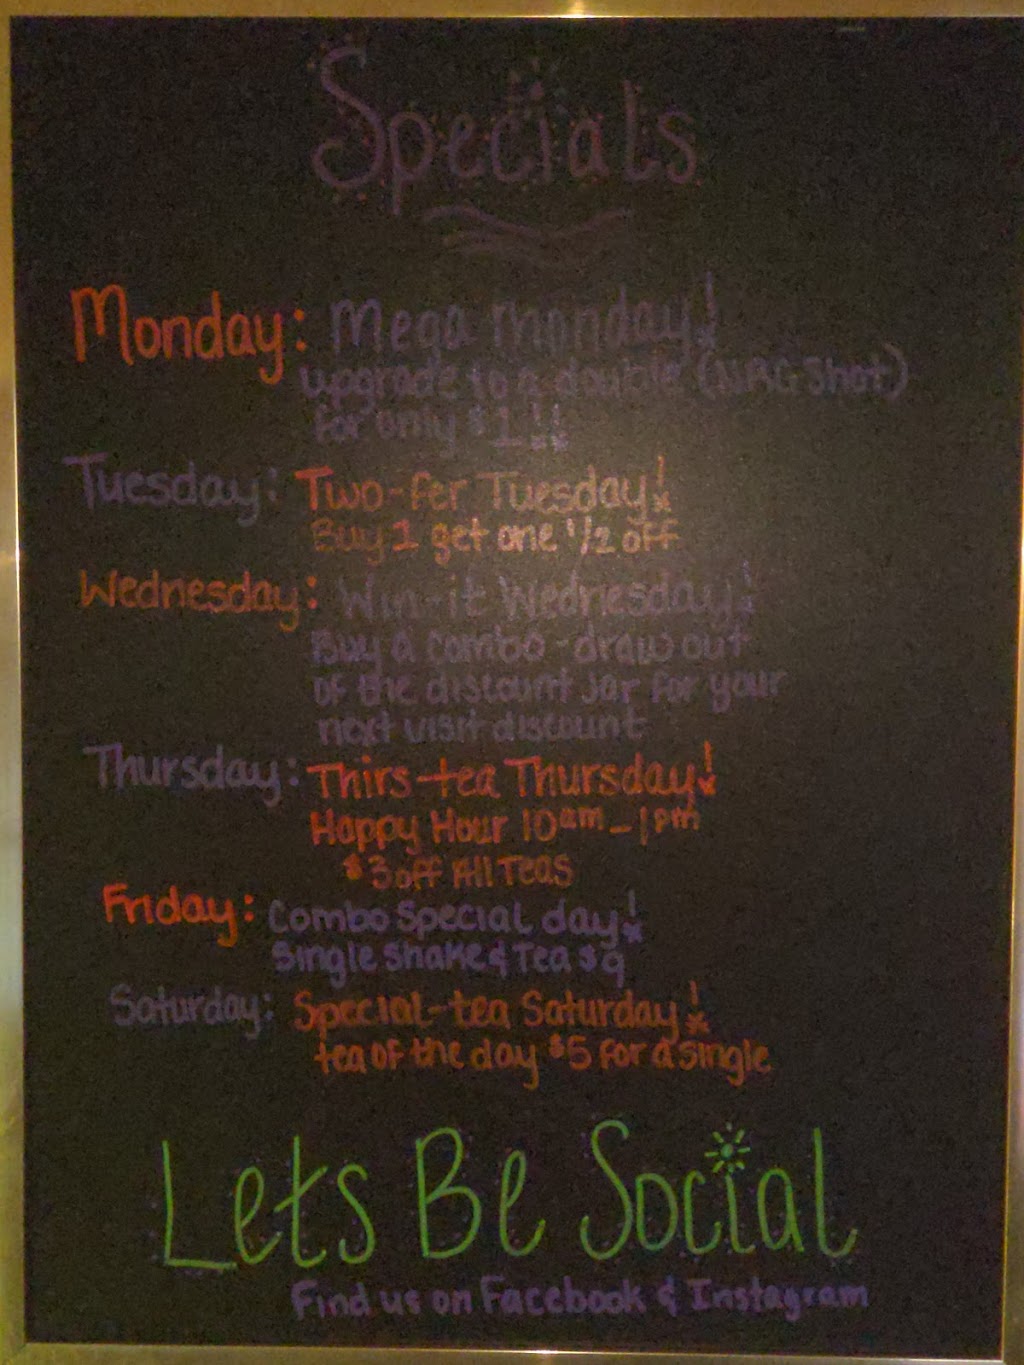 Specials
Monday: Mega monday!
upgrade to a double (NRG Shot)
for only $1!!
Tuesday: Two-fer Tuesday!
Buy 1 get one 1/2 off
Wednesday: Win-it Wednesday!
Buy a combo - draw out
of the discount Jar for your
next visit discount
Thursday: Thirs-tea Thursday!
Happy Hour 10am-1pm
$3 off All Teas
Friday: Combo Special day!
Single Shake & Tea $9
Saturday: Special-tea Saturday!
tea of the day $5 for a single
Lets Be Social
Find us on Facebook & Instagram